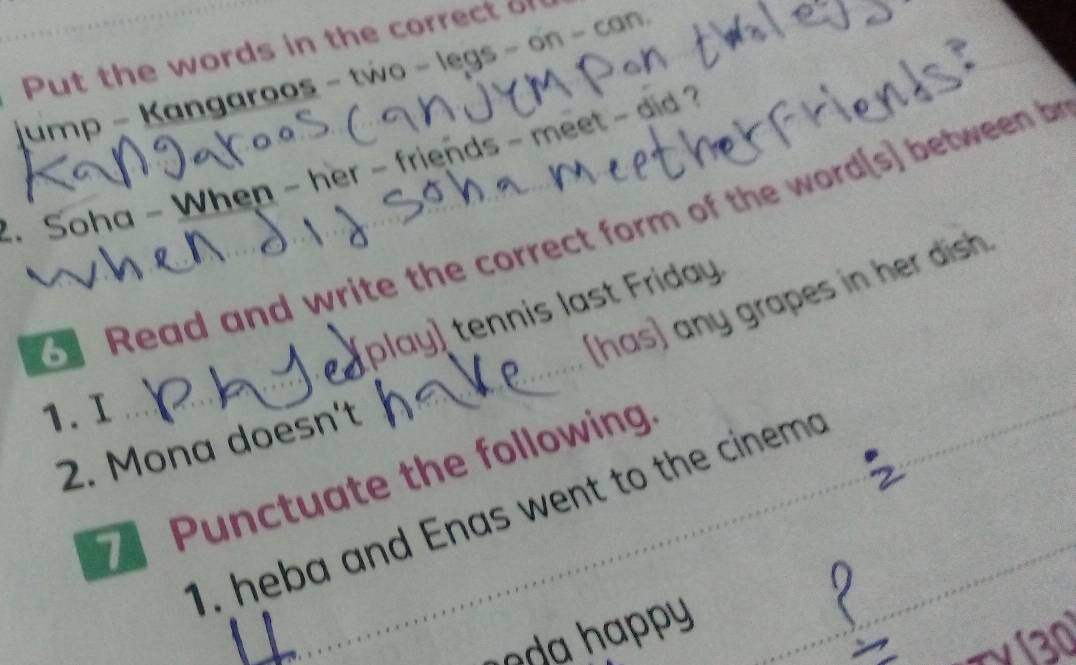 Put the words in the correct
jump - Kangaroos - two - legs - on - can.
Kangaroos can jump on two legs
2. Soha - When - her - friends - meet - did?
When did soha meet her friends?
6 Read and write the correct form of the word(s) between
1. I played (play) tennis last Friday.
2. Mona doesn't have (has) any grapes in her dish.
7 Punctuate the following.
1. heba and Enas went to the cinema
H
happy
?
(30)